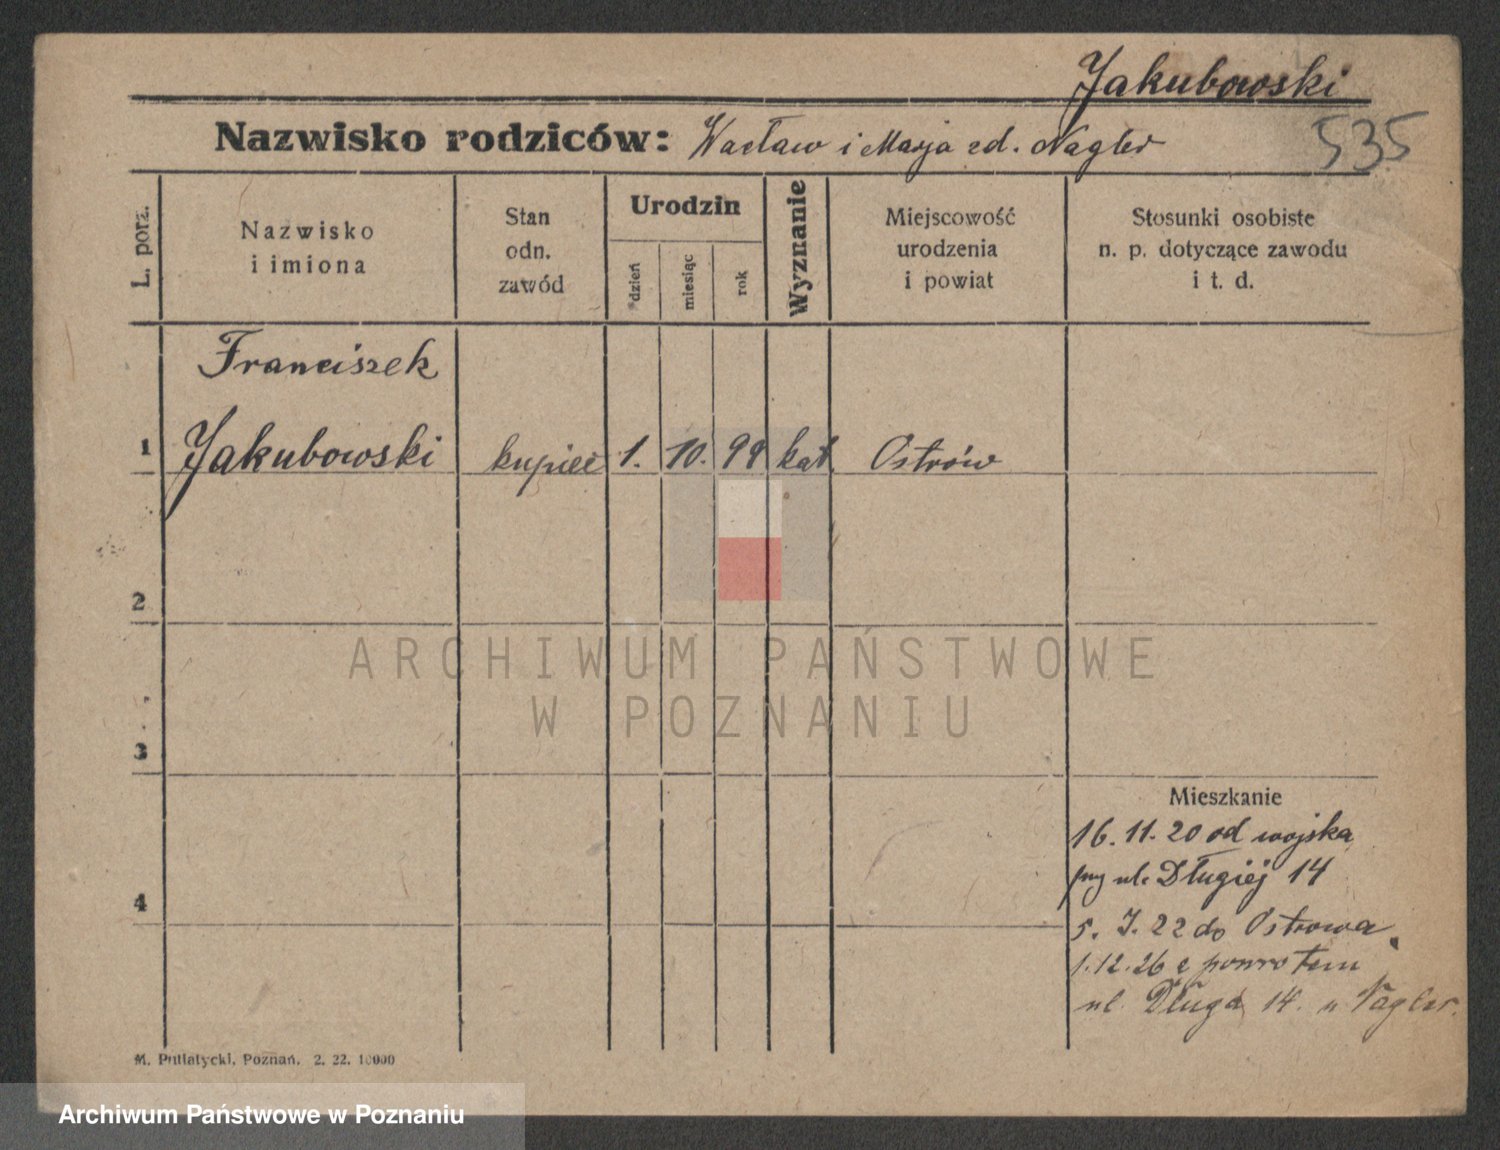 Jakubowski
Nazwisko rodziców: Wacław i Marja zd. Nagler
535
L. porz.
Nazwisko
i imiona
Stan
odn.
zawód
Urodzin
dzień
miesiąc
rok
Wyznanie
Miejscowość
urodzenia
i powiat
Stosunki osobiste
n. p. dotyczące zawodu
i t. d.
Franciszek
1 Jakubowski kupiec 1. 10. 99 kat Ostrów
2
ARCHIWUM PAŃSTWOWE
W POZNANIU
3
Mieszkanie
16. 11. 20 od wojska
przy ul. Długiej 14
4
5. I. 22 do Ostrowa
1.12.26 z powrotem
ul. Długa 14. u Nagler.
M. Putiatycki, Poznań. 2. 22. 10000
Archiwum Państwowe w Poznaniu